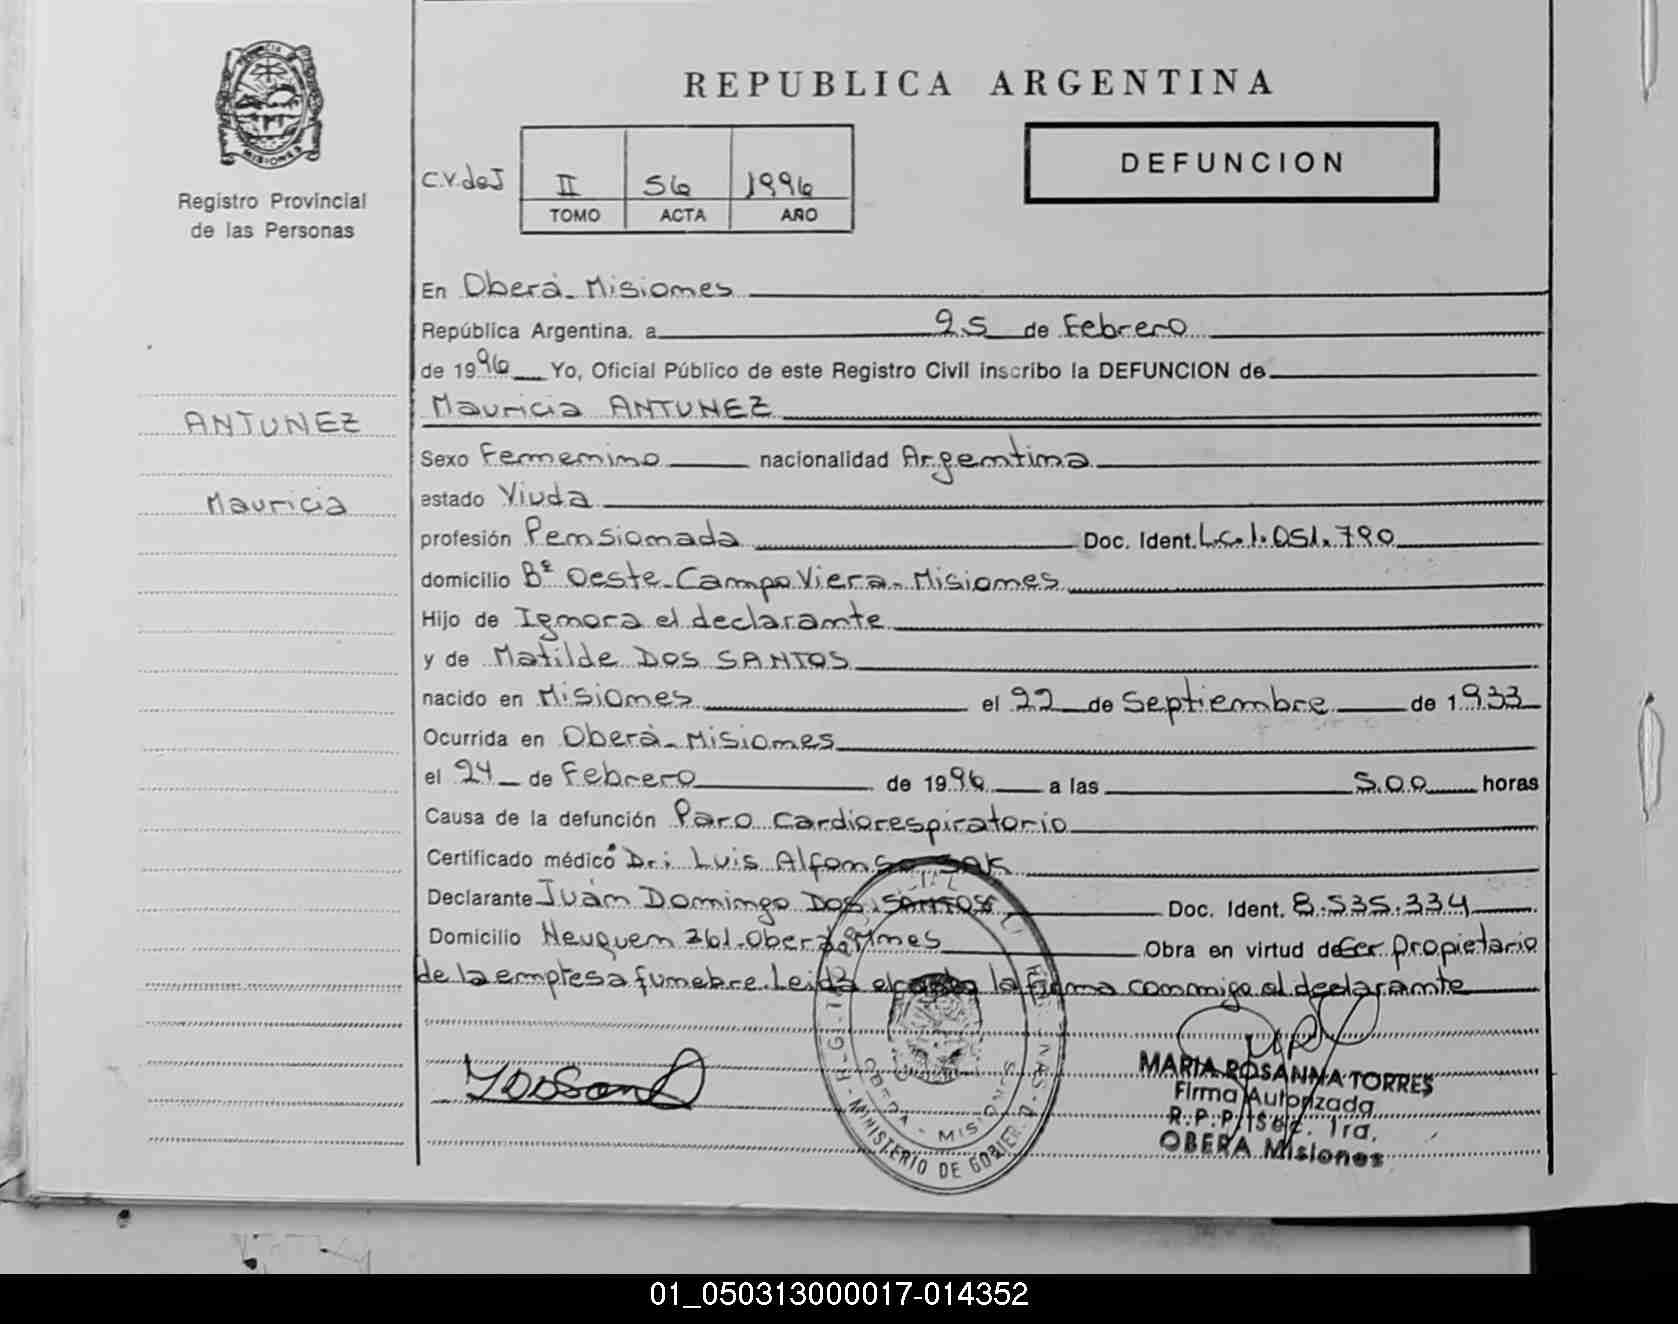 REPUBLICA ARGENTINA
DEFUNCION
C.V.deJ II 56 1996
TOMO ACTA AÑO
MISIONES
Registro Provincial
de las Personas
ANTUNEZ
Mauricia
En Oberá - Misiones
República Argentina, a 25 de Febrero
de 1996 Yo, Oficial Público de este Registro Civil inscribo la DEFUNCION de
Mauricia ANTUNEZ
Sexo Femenino nacionalidad Argentina
estado Viuda
profesión Pensionada Doc. Ident. L.c. 1.051.790
domicilio Bº Oeste - Campo Viera - Misiones
Hijo de Ignora el declarante
y de Matilde DOS SANTOS
nacido en Misiones el 22 de Septiembre de 1933
Ocurrida en Oberá - Misiones
el 24 de Febrero de 1996 a las 5.00 horas
Causa de la defunción Paro cardiorespiratorio
Certificado médico Dr: Luis Alfonso SAK
Declarante Juan Domingo DOS SANTOS Doc. Ident. 8.535.334
Domicilio Neuquen 361 - Oberá Mnes Obra en virtud de ser propietario
de la empresa funebre. Leida el acta la firma conmigo el declarante
MINISTERIO DE GOBIER
OBERA - MISIONES
MARIA ROSANNA TORRES
Firma Autorizada
R.P.P. Sec. 1ra.
OBERA Misiones
01_050313000017-014352